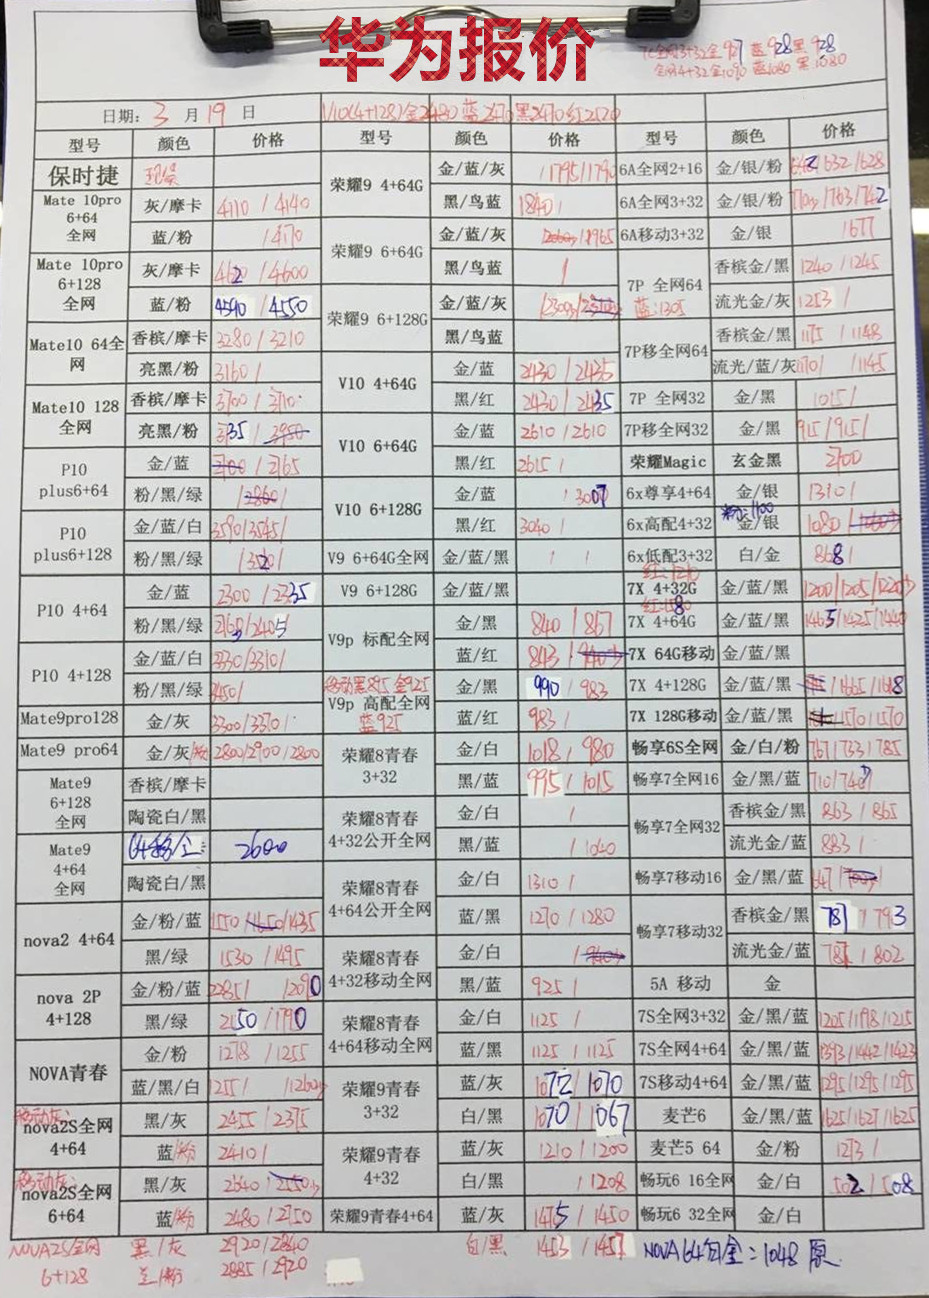 华为报价
7C全网3+32金927 蓝928黑928
全网4+32金1090 蓝1080 黑1080
日期: 3 月 19 日 V10(4+128)金2480 蓝2470黑2470红2520
型号 颜色 价格 型号 颜色 价格 型号 颜色 价格
保时捷 荣耀9 4+64G 金/蓝/灰 1795/1790 6A全网2+16 金/银/粉 /632/628
Mate 10pro 6+64 全网 灰/摩卡 4110/4140 黑/鸟蓝 1840/ 6A全网3+32 金/银/粉 /763/742
蓝/粉 /4170 荣耀9 6+64G 金/蓝/灰 /1965 6A移动3+32 金/银 /677
Mate 10pro 6+128 全网 灰/摩卡 /4600 黑/鸟蓝 / 7P 全网64 香槟金/黑 1240/1245
蓝/粉 4590/4550 荣耀9 6+128G 金/蓝/灰 蓝:1305 流光金/灰 1253/
Mate10 64全网 香槟/摩卡 3280/3210 黑/鸟蓝 7P移全网64 香槟金/黑 1175/1148
亮黑/粉 3160/ V10 4+64G 金/蓝 2430/2435 流光/蓝/灰 1170/1145
Mate10 128 全网 香槟/摩卡 3700/3710 黑/红 2430/2435 7P 全网32 金/黑 1015/
亮黑/粉 3735/ V10 6+64G 金/蓝 2610/2610 7P移全网32 金/黑 915/915/
P10 plus6+64 金/蓝 /2765 黑/红 2615/ 荣耀Magic 玄金黑 2700
粉/黑/绿 V10 6+128G 金/蓝 /3007 6x尊享4+64 金/银 1310/
P10 plus6+128 金/蓝/白 3590/3545/ 黑/红 3040/ 6x高配4+32 粉:1100 金/银 1080/
粉/黑/绿 V9 6+64G全网 金/蓝/黑 / / 6x低配3+32 白/金 868/
P10 4+64 金/蓝 2300/2335 V9 6+128G 金/蓝/黑 红:1210 7X 4+32G 金/蓝/黑 1200/1205/1220
粉/黑/绿 /2405 V9p 标配全网 金/黑 840/867 7X 4+64G 金/蓝/黑 1465/1425/1440
P10 4+128 金/蓝/白 3330/3310/ 蓝/红 843/ 7X 64G移动 金/蓝/黑
粉/黑/绿 3450/ 移动黑895 金925 V9p 高配全网 蓝925 金/黑 990/983 7X 4+128G 金/蓝/黑 /1665/1618
Mate9pro128 金/灰 3300/3370 蓝/红 983/ 7X 128G移动 金/蓝/黑 /1570/1570
Mate9 pro64 金/灰/粉 2800/2900/2800 荣耀8青春 3+32 金/白 1018/980 畅享6S全网 金/白/粉 767/733/785
Mate9 6+128 全网 香槟/摩卡 黑/蓝 995/1015 畅享7全网16 金/黑/蓝 710/740
陶瓷白/黑 荣耀8青春 4+32公开全网 金/白 / 畅享7全网32 香槟金/黑 863/865
Mate9 4+64 全网 2600 黑/蓝 /1040 流光金/蓝 883/
陶瓷白/黑 荣耀8青春 4+64公开全网 金/白 1310/ 畅享7移动16 金/黑/蓝 647/
nova2 4+64 金/粉/蓝 1550/ /1435 蓝/黑 1270/1280 畅享7移动32 香槟金/黑 787/793
黑/绿 1530/1495 荣耀8青春 4+32移动全网 金/白 流光金/蓝 /802
nova 2P 4+128 金/粉/蓝 /2090 黑/蓝 925/ 5A 移动 金
黑/绿 2150/1790 荣耀8青春 4+64移动全网 金/白 1125/ 7S全网3+32 金/黑/蓝 1205/1198/1215
NOVA青春 金/粉 1278/1255 蓝/黑 1125/1125 7S全网4+64 金/黑/蓝 1393/1442/1423
蓝/黑/白 1255/ 荣耀9青春 3+32 蓝/灰 1072/1070 7S移动4+64 金/黑/蓝 1295/1295/1295
移动灰: nova2S全网 4+64 黑/灰 2455/2375 白/黑 1070/1067 麦芒6 金/黑/蓝 1625/1627/1625
蓝/粉 2410/ 荣耀9青春 4+32 蓝/灰 1210/1200 麦芒5 64 金/粉 1273/
移动灰: nova2S全网 6+64 黑/灰 2640/ 白/黑 /1208 畅玩6 16全网 金/白 502/508
蓝/粉 2480/2750 荣耀9青春4+64 蓝/灰 1475/1450 畅玩6 32全网 金/白
NOVA2S全网 黑/灰 2920/2840 白/黑 1453/1457 NOVA 64白金:1048 原
6+128 兰/粉 2885/2920